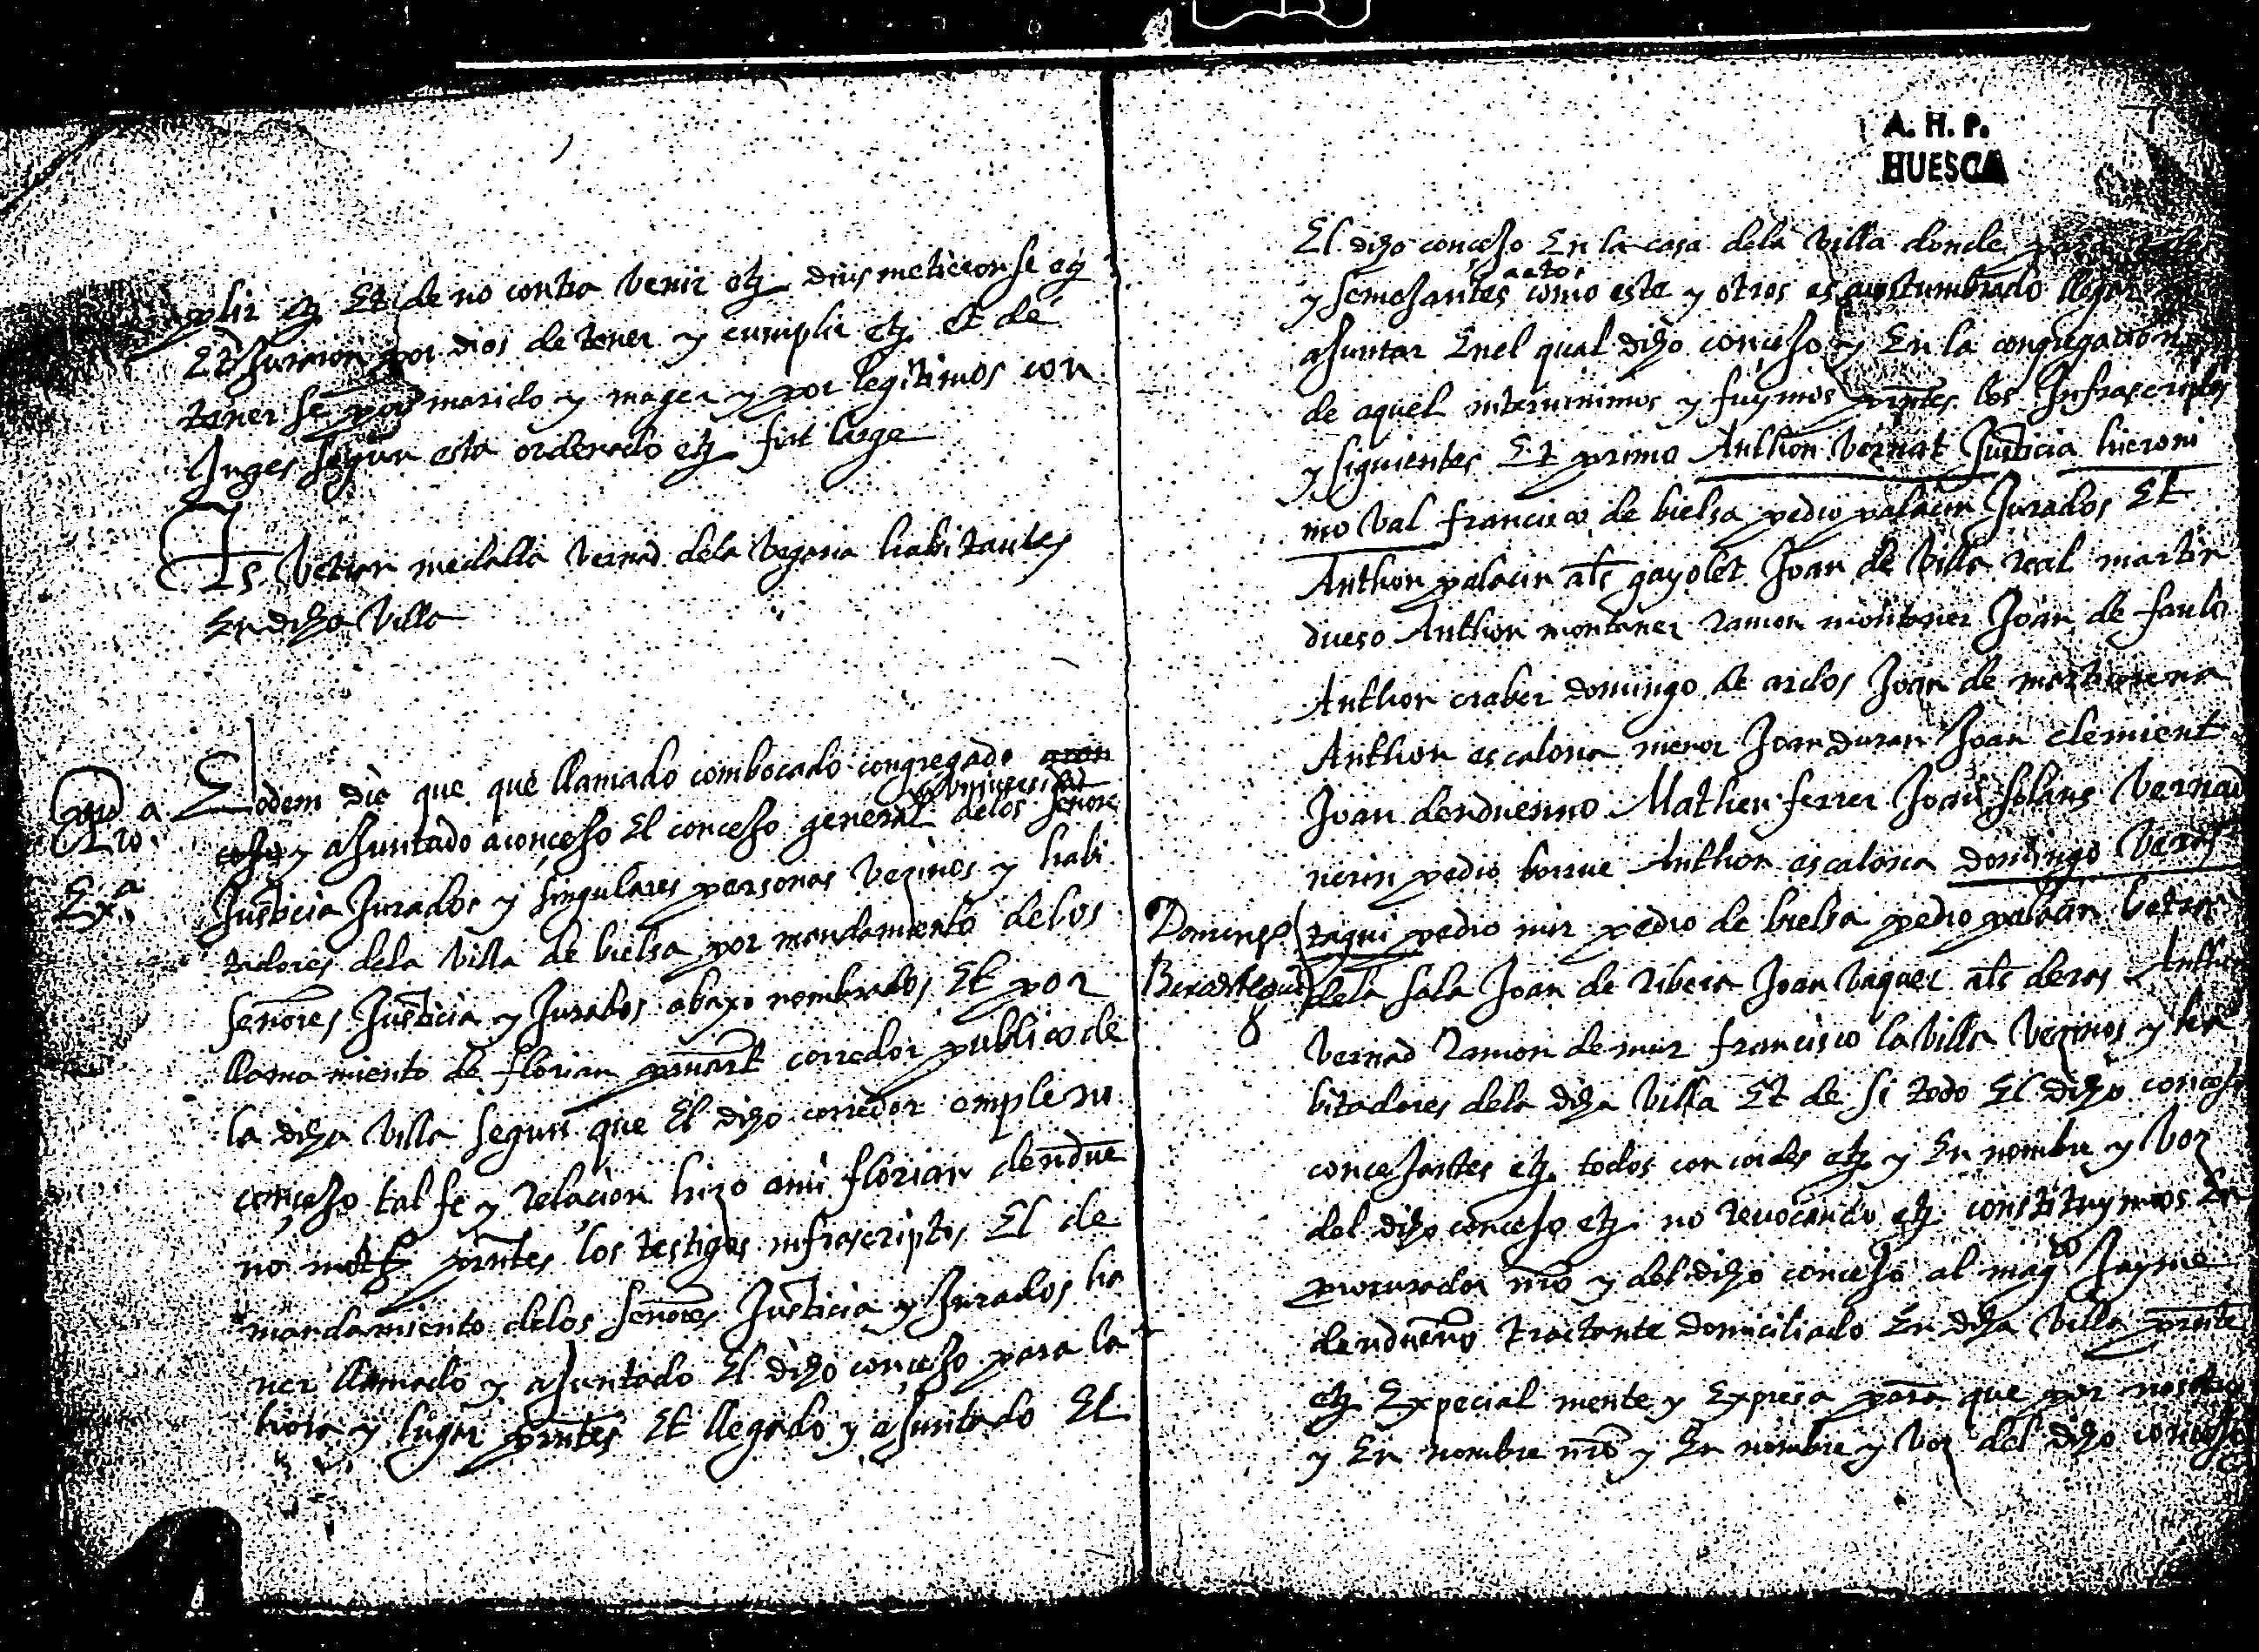 plir etz Et de no contra venir etz dius metieronse etz
Et Juraron por dios de tener y cumplir etz et de
tener se por marido y mager y por legitimos con
Juges segun esta ordenado etz fiat large
Ts Vetran medalla Vernad dela Vegaria habitantes
En dicha Villa
Eodem die que que llamado combocado congregado
Universidat
y aJuntado a conceJo El conceJo general delos señores
Justicia Jurados y singulares personas Vezinos y habi
tadores dela Villa de bielsa por mandamiento delos
señores Justicia y Jurados abaxo nombrados Et por
llamamiento de florian corredor publico de
la dicha Villa segun que El dicho corredor emplero
conceJo tal fe y relacion hizo a mi florian dendue
no not pntes los testigos infrascriptos El de
mandamiento delos señores Justicia y Jurados ha
ver llamado y aJuntado El dicho conceJo para la
hora y lugar pntes Et llegado y aJuntado El
A. H. P.
HUESCA
El dicho conceJo En la casa dela Villa donde para
actos
y semeJantes como este y otros es acostumbrado llegar
aJuntar Enel qual dicho conceJo y En la congregacion
de aquel interuinimos y fuymos pntes los Infrascriptos
y siguientes Et primo Anthon Vernat Justicia hieroni
mo Val francisco de bielsa pedro palacin Jurados Et
Anthon palacin als gayolet Joan de Villa real martin
dueso Anthon montaner Ramon montaner Joan de fanlo
Anthon craber domingo de arclos Joan de
Anthon escalona menor Joan duran Joan clemient
Joan denduenno Matheu ferrer Joan solans Vernad
nerin pedro borrue Anthon escalona domingo Veras
Domingo
Berastegui
tagui pedro mir pedro de bielsa pedro palacin betran
dela sala Joan de Ribera Joan Vaquer als deras Anthon
Vernad Ramon de mur francisco la Villa Vezinos y ha
bitadores dela dicha Villa Et de si todo El dicho conceJo
conceJantes etz todos concordes etz y En nombre y Voz
del dicho conceJo etz no revocando etz constituymos En
procurador nro y del dicho conceJo al magco Jayme
denduenno tractante domiciliado En dicha Villa pnte
etz Expecial mente y Expresa para que por nosotros
y En nombre nro y En nombre y Voz del dicho conceJo